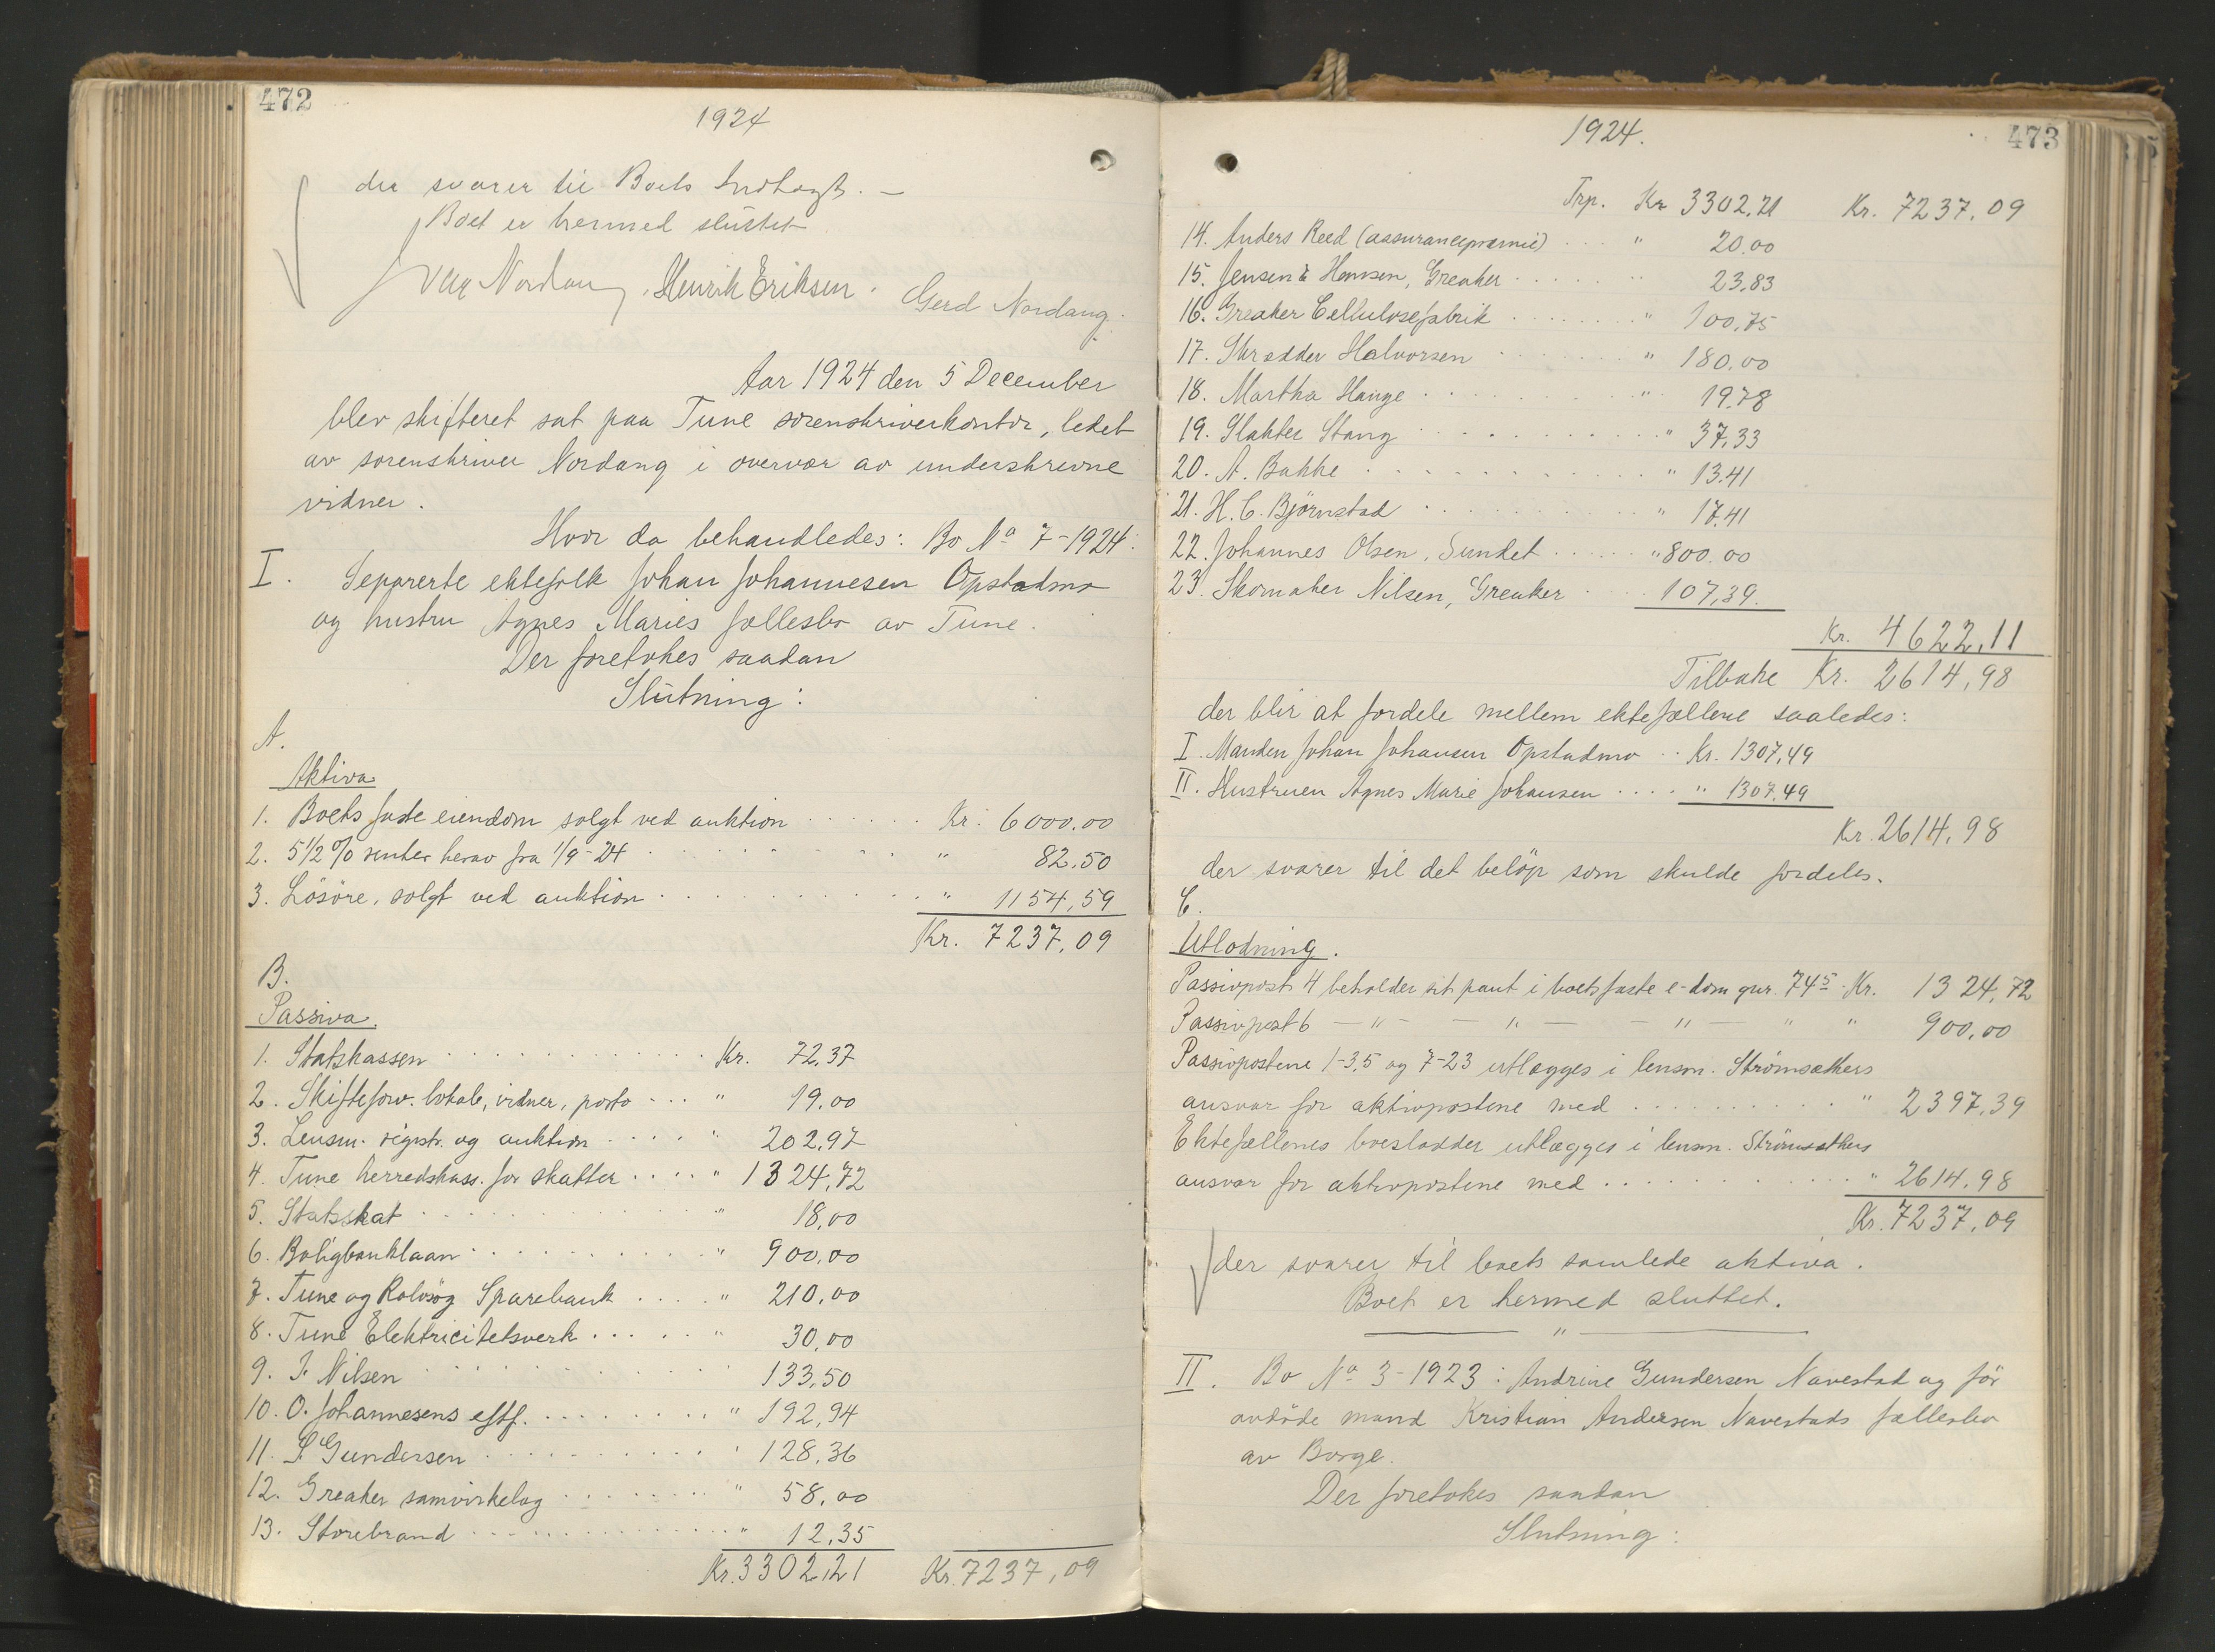 472
1924
der svarer til Boets Indtægt. —
Boet er hermed sluttet
Nordang. Henrik Eriksen. Gerd Nordang.
Aar 1924 den 5 December
blev skifteret sat paa Tune sorenskriverkontor, ledet
av sorenskriver Nordang i overvær av underskrevne
vidner.
Hvor da behandledes: Bo No 7-1924:
I. Separerte ektefolk Johan Johannesen Opstadmo
og hustru Agnes Maries fællesbo av Tune.
Der foretokes saadan
Slutning:
A.
Aktiva
1. Boets faste eiendom solgt ved auktion . . . . . . Kr. 6000.00
2. 5 1/2 % renter herav fra 1/9-24 . . . . . . " 82.50
3. Lösöre, solgt ved auktion . . . . . . " 1154,59
Kr. 7237,09
B.
Passiva.
1. Statskassen . . . . . . Kr. 72,37
2. Skifteforv. lokale, vidner, porto . . . " 19.00
3. Lensm. registr. og auktion . . . . " 202,97
4. Tune herredskass. for skatter . . . . " 1324,72
5. Statsskat . . . . . . " 18,00
6. Boligbanklaan . . . . . . " 900,00
7. Tune og Rolvsög Sparebank . . . . " 210,00
8. Tune Elektricitetsverk . . . . . " 30,00
9. J. Nilsen . . . . . . 133,50
10. O. Johannesens eftf. . . . . . . " 192,94
11. S. Gundersen . . . . . . " 128,36
12. Greaker samvirkelag . . . . . . " 58,00
13. Storebrand . . . . . . " 12,35
Kr. 3302,21 Kr. 7237,09
1924.
473
Trp. Kr 3302,21 Kr. 7237,09
14. Anders Reed (assurancepræmie) . . . " 20.00
15. Jensen & Hansen, Greaker . . . . . " 23,83
16. Greaker Cellulosefabrik . . . . . . " 100,75
17. Skrædder Halvorsen . . . . . . " 180,00
18. Martha Hauge . . . . . . " 19,78
19. Slakter Stang . . . . . . " 37,33
20. A. Bakke . . . . . . " 13.41
21. H. C. Björnstad . . . . . . " 17,41
22. Johannes Olsen, Sundet . . . . . " 800.00
23. Skomaker Nilsen, Greaker . . . . 107,39.
Kr. 4622,11
Tilbake Kr. 2614,98
der blir at fordele mellem ektefællene saaledes:
I. Manden Johan Johansen Opstadmo . . Kr. 1307,49
II. Hustruen Agnes Marie Johansen . . . . " 1307,49
Kr. 2614,98
der svarer til det belöp som skulde fordeles.
C.
Utlodning.
Passivpost 4 beholder sit pant i boets faste e-dom gnr. 74⁵ Kr. 1324,72
Passivpost 6 — " — — " — — " " " 900,00
Passivpostene 1-3,5 og 7-23 utlægges i lensm. Strömsæthers
ansvar for aktivpostene med . . . . . . " 2397,39
Ektefællenes boeslodder utlægges i lensm. Strömsæthers
ansvar for aktivpostene med . . . . . . " 2614,98
Kr. 7237,09
der svarer til boets samlede aktiva.
Boet er hermed sluttet.
— " —
II. Bo No 3-1923: Andrine Gundersen Navestad og för
avdöde mand Kristian Andersen Navestads fællesbo
av Borge.
Der foretokes saadan
Slutning: